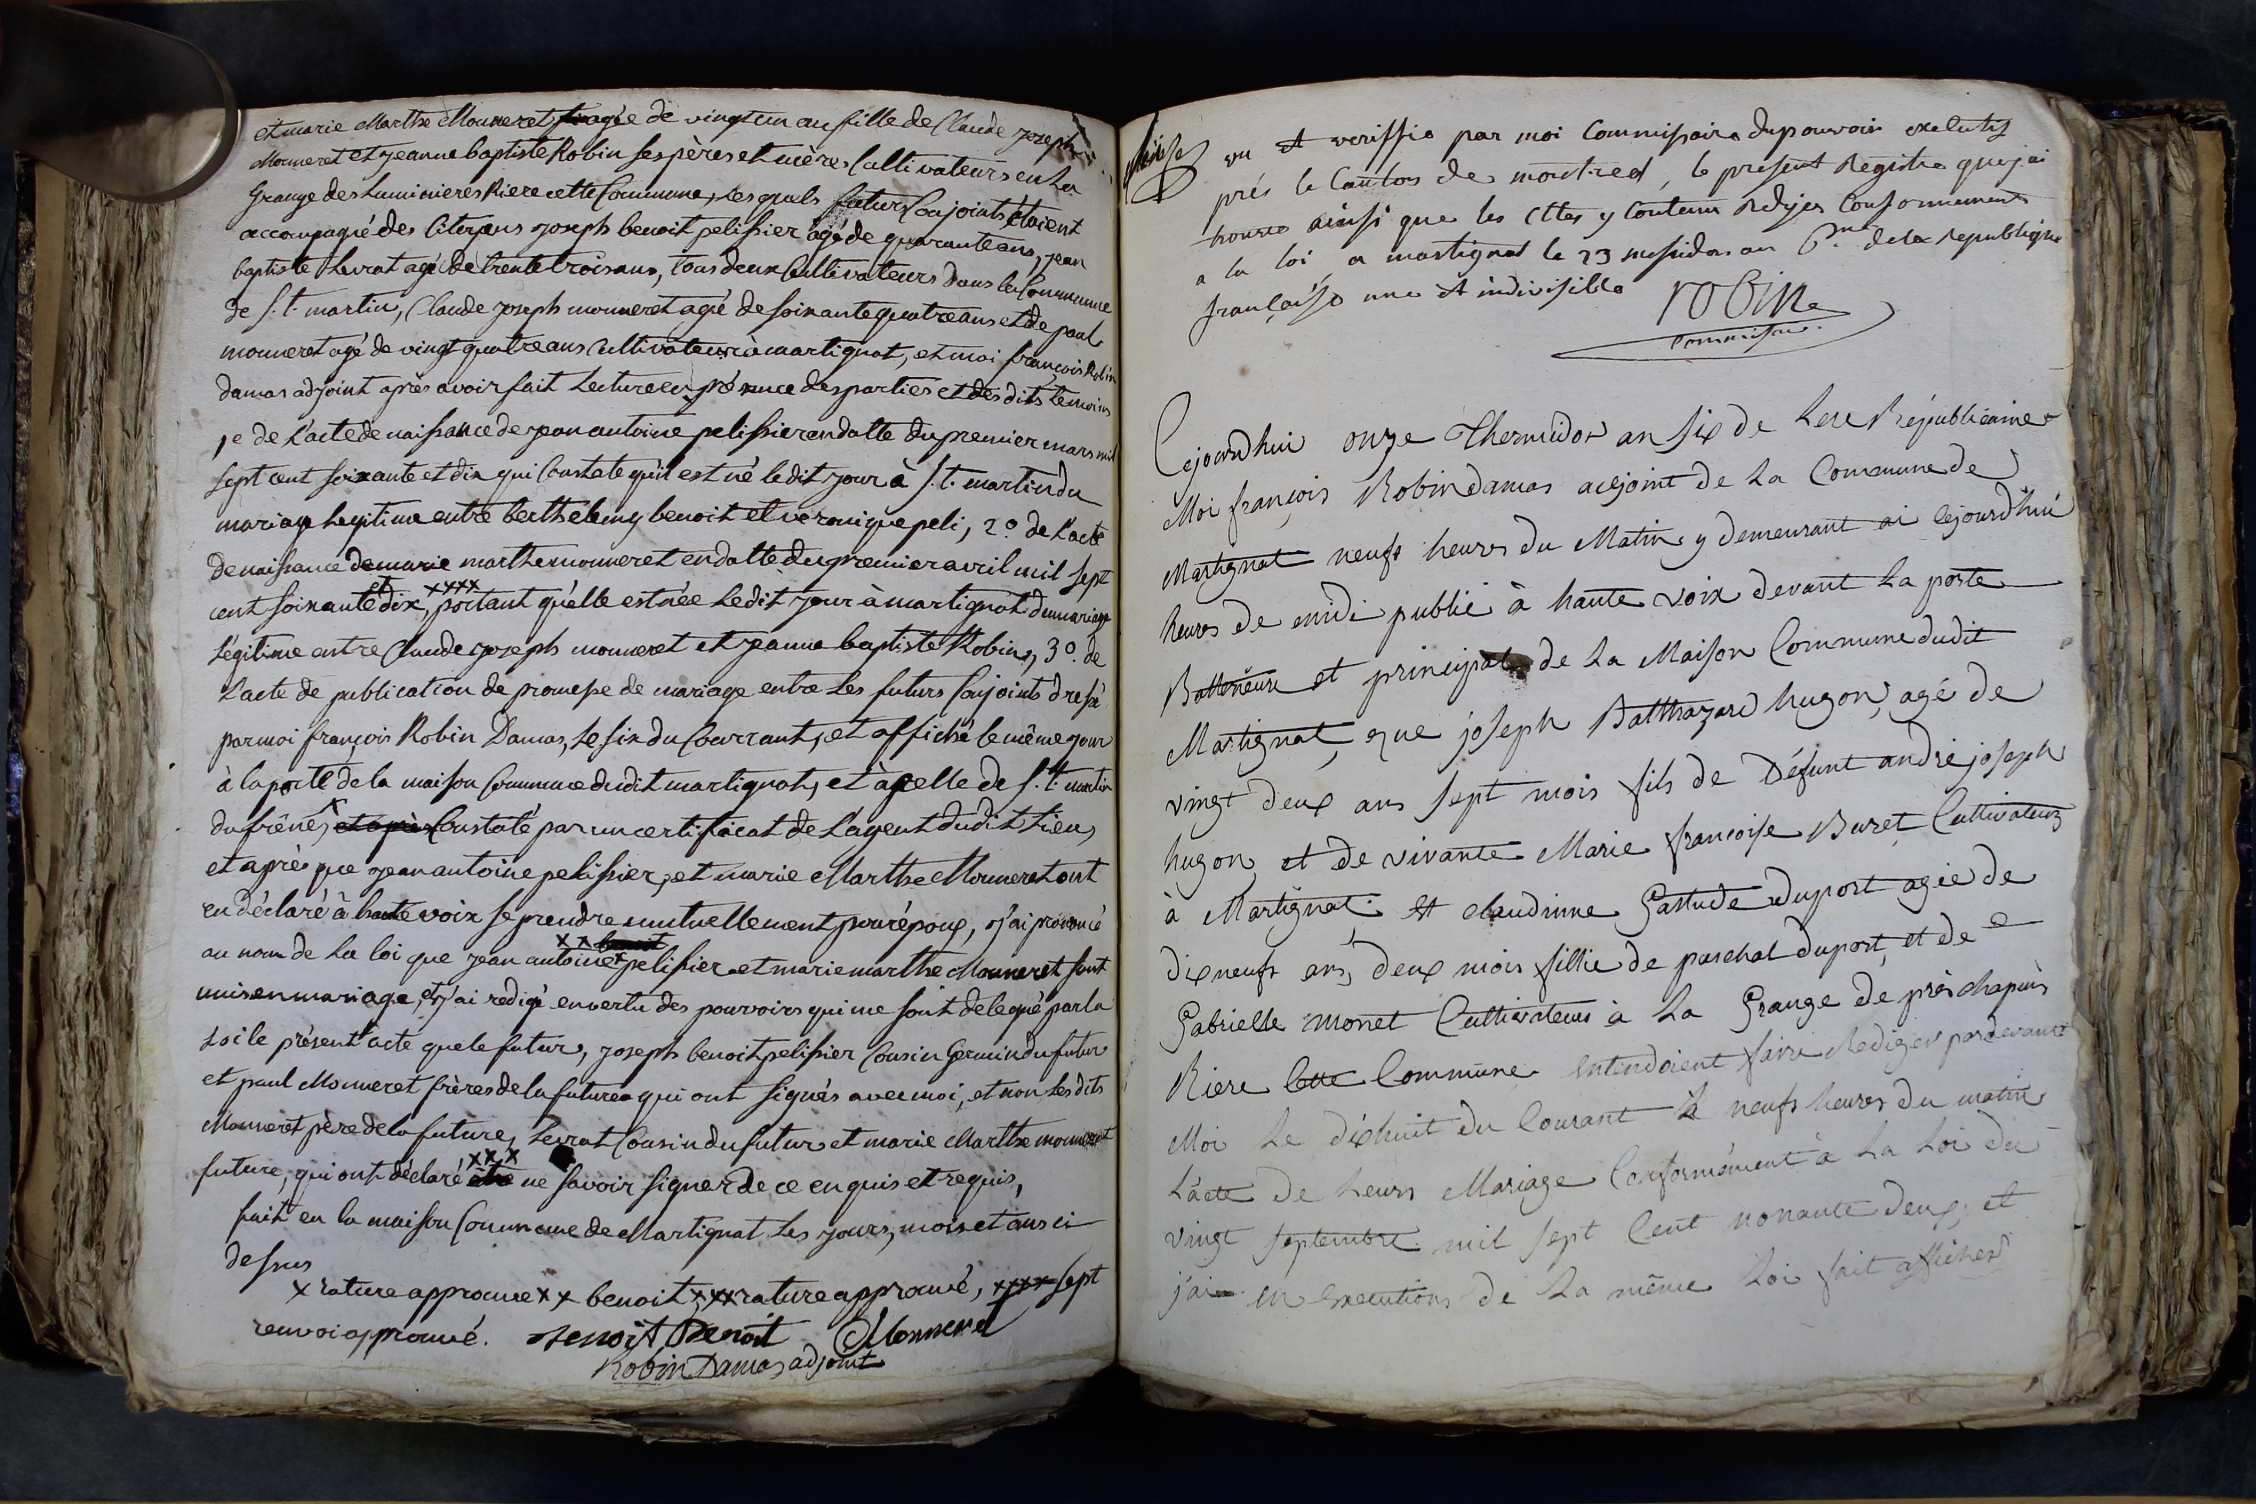 et marie Marthe Monneret agée de vingt un an fille de Claude joseph
Monneret et jeanne baptiste Robin ses pères et mères Cultivateurs en La
Grange des Luminieres Riere cette Commune, Les quels futurs Conjoints étoient
accompagné des Citoyens joseph benoit pelissier agé de quarante ans, jean
baptiste Levrat agé de trente trois ans, tous deux Cultivateurs dans la Commune
de s.t. martin, Claude joseph monneret agé de soixante quatre ans et de paul
monneret agé de vingt quatre ans Cultivateurs à martignat, et moi françois Robin
damas adjoint après avoir fait Lecture en présence des parties et des dits temoins
1.e de L'acte de naissance de jean antoine pelissier en datte du premier mars mil
sept cent soixante et dix qui Constate qu'il est né le dit jour à s.t. martin du
mariage Legitime entre berthelemy benoit et veronique peli, 2.o de L'acte
de naissance de marie marthe monneret en datte du premier avril mil sept
cent soixante et dix, xxxx portant qu'elle est née Le dit jour à martignat du mariage
Légitime entre Claude joseph monneret et jeanne baptiste Robin, 3.o de
L'acte de publication de promesse de mariage entre Les futurs Conjoints dressé
par moi françois Robin Damas, Le six du Courrant, et affiché le même jour
à la porte de la maison Commune dudit martignat, et à celle de s.t. martin
du frêne, x et après Constaté par un certificat de L'agent dudit Lieu,
et après que jean antoine pelissier, et marie Marthe Monneret ont
eu déclaré à haute voix se prendre mutuellement pour époux, j'ai prononcé
au nom de La loi que jean antoine xx benoit pelissier et marie marthe Monneret sont
unis en mariage, et j'ai redigé en vertu des pouvoirs qui me sont delegué par la
Loi le présent acte que le futur, joseph benoit pelissier Cousin Germin du futur
et paul Monneret frères de la future qui ont signés avec moi, et non Les dits
Monneret père de la future, Levrat Cousin du futur et marie Marthe monneret
future, qui ont déclaré xxx être ne savoir signer de ce enquis et requis,
fait en la maison Commune de Martignat Les jours, mois et ans ci
dessus
x rature approuvé xx benoit, xxx rature approuvé, xxxx sept
renvoi approuvé. Benoit Monneret
Robin Damas adjoint
vu et veriffié par moi Commissaire du pouvoir exekutif
près le Canton de montreal, le present Registre que j'ai
trouvé ainsi que les Actes y Contenus Redijés Conformement
a la loi a martignat le 23 messidor an 6.me de la Republique
française une et indivisible
robin
Commissaire
Cejourd'hui onze Thermidor an six de L'ere Républicaine
Moi françois Robin damas adjoint de La Commune de
Martignat neufs heures du Matin y demeurant ai Cejourd'hui
heures de midi publié à haute voix devant La porte
Extérieure et principale de La Maison Commune dudit
Martignat, que joseph Balthazard hugon, agé de
vingt deux ans sept mois fils de Défunt andré joseph
hugon et de vivante Marie francoise Buret Cultivateurs
à Martignat, et claudinne Gastude duport agée de
dix neufs ans, deux mois fillie de paschal duport, et de
Gabrielle Monet Cultivateurs à La Grange de près chapuis
Riere Cette Commune entendoient faire Rediger pardevant
Moi Le dixhuit du Courant à neufs heures du matin
L'acte de Leurs Mariage Conformément à La Loi du
vingt septembre mil sept Cent nonante deux, et
j'ai en exécutions de La même Loi fait afficher